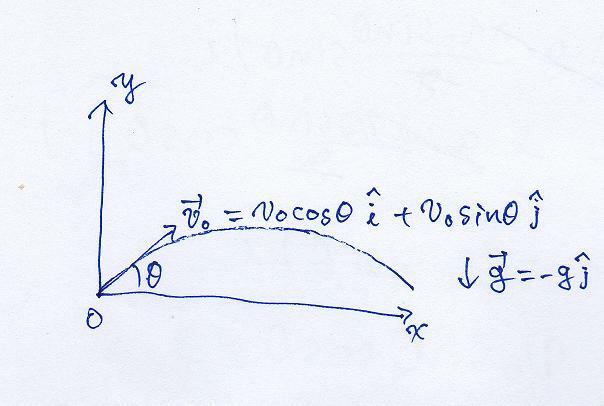 y
v⃗₀ = v₀cosθ î + v₀sinθ ĵ
θ
↓ g⃗ = -gĵ
O
x